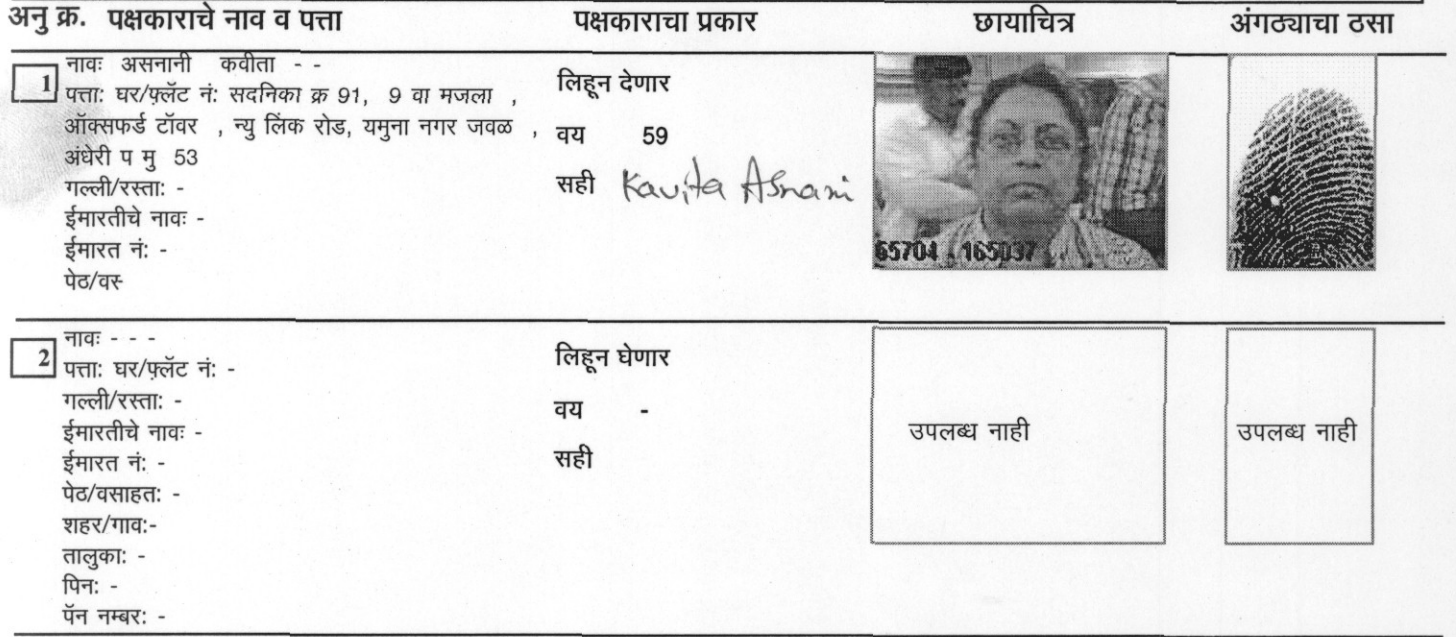 अनु क्र. पक्षकाराचे नाव व पत्ता पक्षकाराचा प्रकार छायाचित्र अंगठ्याचा ठसा
1
नावः असनानी कवीता - -
पत्ता: घर/फ़्लॅट नं: सदनिका क्र 91, 9 वा मजला ,
ऑक्सफर्ड टॉवर , न्यु लिंक रोड, यमुना नगर जवळ ,
अंधेरी प मु 53
गल्ली/रस्ता: -
ईमारतीचे नावः -
ईमारत नं: -
पेठ/वस
लिहून देणार
वय 59
सही Kavita Asnani
65704 165037
2
नावः - - -
पत्ता: घर/फ़्लॅट नं: -
गल्ली/रस्ता: -
ईमारतीचे नावः -
ईमारत नं: -
पेठ/वसाहत: -
शहर/गाव:-
तालुका: -
पिन: -
पॅन नम्बर: -
लिहून घेणार
वय -
सही
उपलब्ध नाही
उपलब्ध नाही